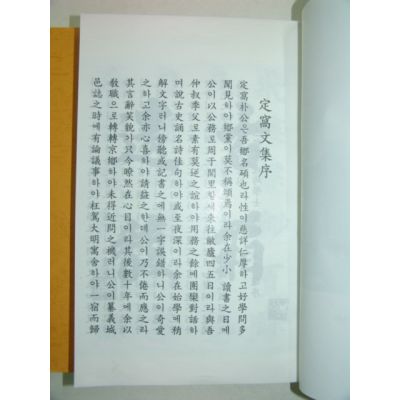 定窩文集序
定窩朴公은吾鄕名碩也라性이慈詳仁厚하고好學問多
聞見하야鄕黨이莫不稱焉이라余在少小讀書之日에
公이以公務로周于閭里할새來往敝廬四五日이라與吾
仲叔季父로素有莫逆之誼하야用務之餘에團欒對話하
며說古史誦名詩佳句하야或至夜深이라余在始學에稍
解文字러니傍聽或記書之에無一字誤錯하니公이奇愛
之하고余亦心喜하야請益之한데公이乃不倦而應之라
其言辭笑貌가只今暸然在心目이라其後數十年에余以
敎職으로轉轉京鄕하야未得近問之機러니公이纂義城
邑誌之時에有論議事하야枉駕大明寓舍하야一宿而歸